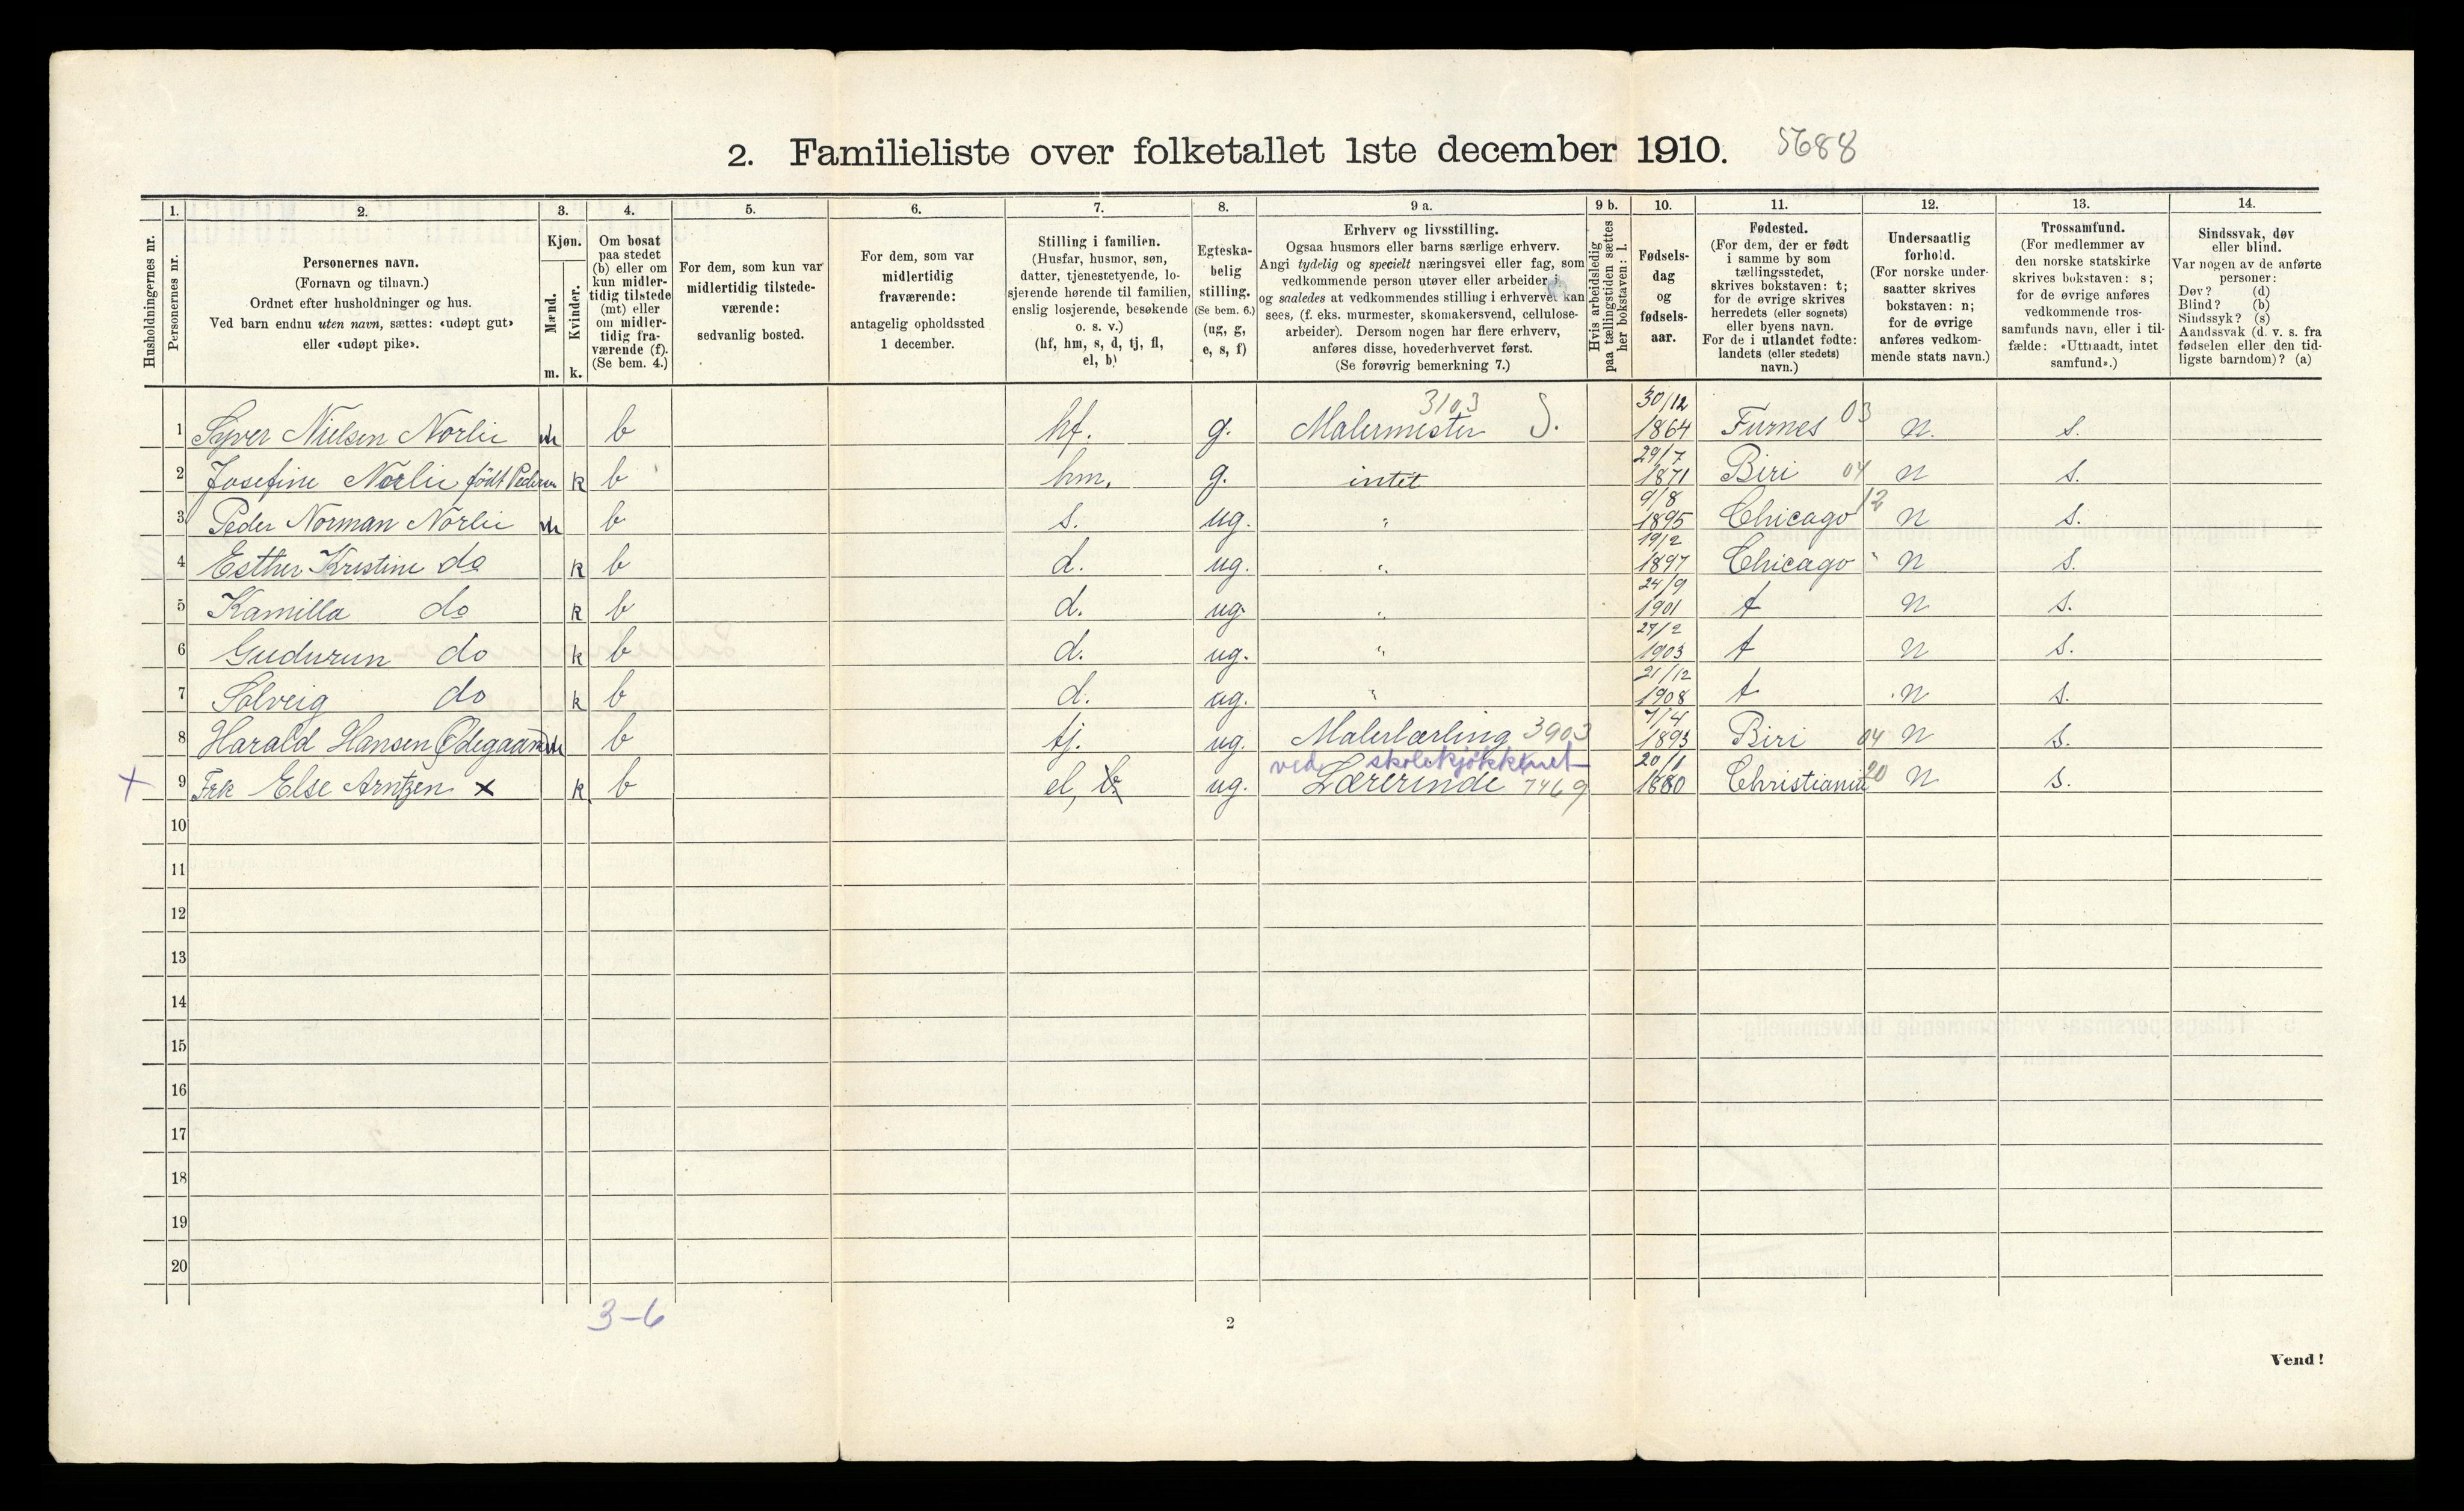 2. Familieliste over folketallet 1ste december 1910. 5688
Husholdningernes nr.
1.
Personernes nr.
2.
Personernes navn.
(Fornavn og tilnavn.)
Ordnet efter husholdninger og hus.
Ved barn endnu uten navn, sættes: «udøpt gut»
eller «udøpt pike».
3.
Kjøn.
Mænd.
Kvinder.
m. k.
4.
Om bosat
paa stedet
(b) eller om
kun midler-
tidig tilstede
(mt) eller
om midler-
tidig fra-
værende (f).
(Se bem. 4.)
5.
For dem, som kun var
midlertidig tilstede-
værende:
sedvanlig bosted.
6.
For dem, som var
midlertidig
fraværende:
antagelig opholdssted
1 december.
7.
Stilling i familien.
(Husfar, husmor, søn,
datter, tjenestetyende, lo-
sjerende hørende til familien,
enslig losjerende, besøkende
o. s. v.)
(hf, hm, s, d, tj, fl,
el, b)
8.
Egteska-
belig
stilling.
(Se bem. 6.)
(ug, g,
e, s, f)
9 a.
Erhverv og livsstilling.
Ogsaa husmors eller barns særlige erhverv.
Angi tydelig og specielt næringsvei eller fag, som
vedkommende person utøver eller arbeider i,
og saaledes at vedkommendes stilling i erhvervet kan
sees, (f. eks. murmester, skomakersvend, cellulose-
arbeider). Dersom nogen har flere erhverv,
anføres disse, hovederhvervet først.
(Se forøvrig bemerkning 7.)
9 b.
Hvis arbeidsledig
paa tællingstiden sættes
her bokstaven: l.
10.
Fødsels-
dag
og
fødsels-
aar.
11.
Fødested.
(For dem, der er født
i samme by som
tællingsstedet,
skrives bokstaven: t;
for de øvrige skrives
herredets (eller sognets)
eller byens navn.
For de i utlandet fødte:
landets (eller stedets)
navn.)
12.
Undersaatlig
forhold.
(For norske under-
saatter skrives
bokstaven: n;
for de øvrige
anføres vedkom-
mende stats navn.)
13.
Trossamfund.
(For medlemmer av
den norske statskirke
skrives bokstaven: s;
for de øvrige anføres
vedkommende tros-
samfunds navn, eller i til-
fælde: «Uttraadt, intet
samfund».)
14.
Sindssvak, døv
eller blind.
Var nogen av de anførte
personer:
Døv? (d)
Blind? (b)
Sindssyk? (s)
Aandssvak (d. v. s. fra
fødselen eller den tid-
ligste barndom)? (a)
1 Syver Nielsen Norlie m b hf. g. Malermester 3103 S. 30/12 1864 Furnes 03 n. s.
2 Josefine Norlie født Pedersen k b hm. g. intet 29/7 1871 Biri 04 n s.
3 Peder Norman Norlie m b s. ug. " 9/8 1895 Chicago 12 n s.
4 Esther Kristine do k b d. ug. " 19/2 1897 Chicago " n s.
5 Kamilla do k b d. ug. " 24/9 1901 t n s.
6 Gudurun do k b d. ug. " 27/2 1903 t n s.
7 Solveig do k b d. ug. " 21/12 1908 t n s.
8 Harald Hansen Ødegaard m b tj. ug. Malerlærling 3903 7/4 1893 Biri 04 n s.
ved skolekjøkkenet
+ 9 Frk Else Arntzen x k b el, b. ug. Lærerinde 7469 20/1 1880 Christiania 20 n s.
10
11
12
13
14
15
16
17
18
19
20
3-6
2
Vend!